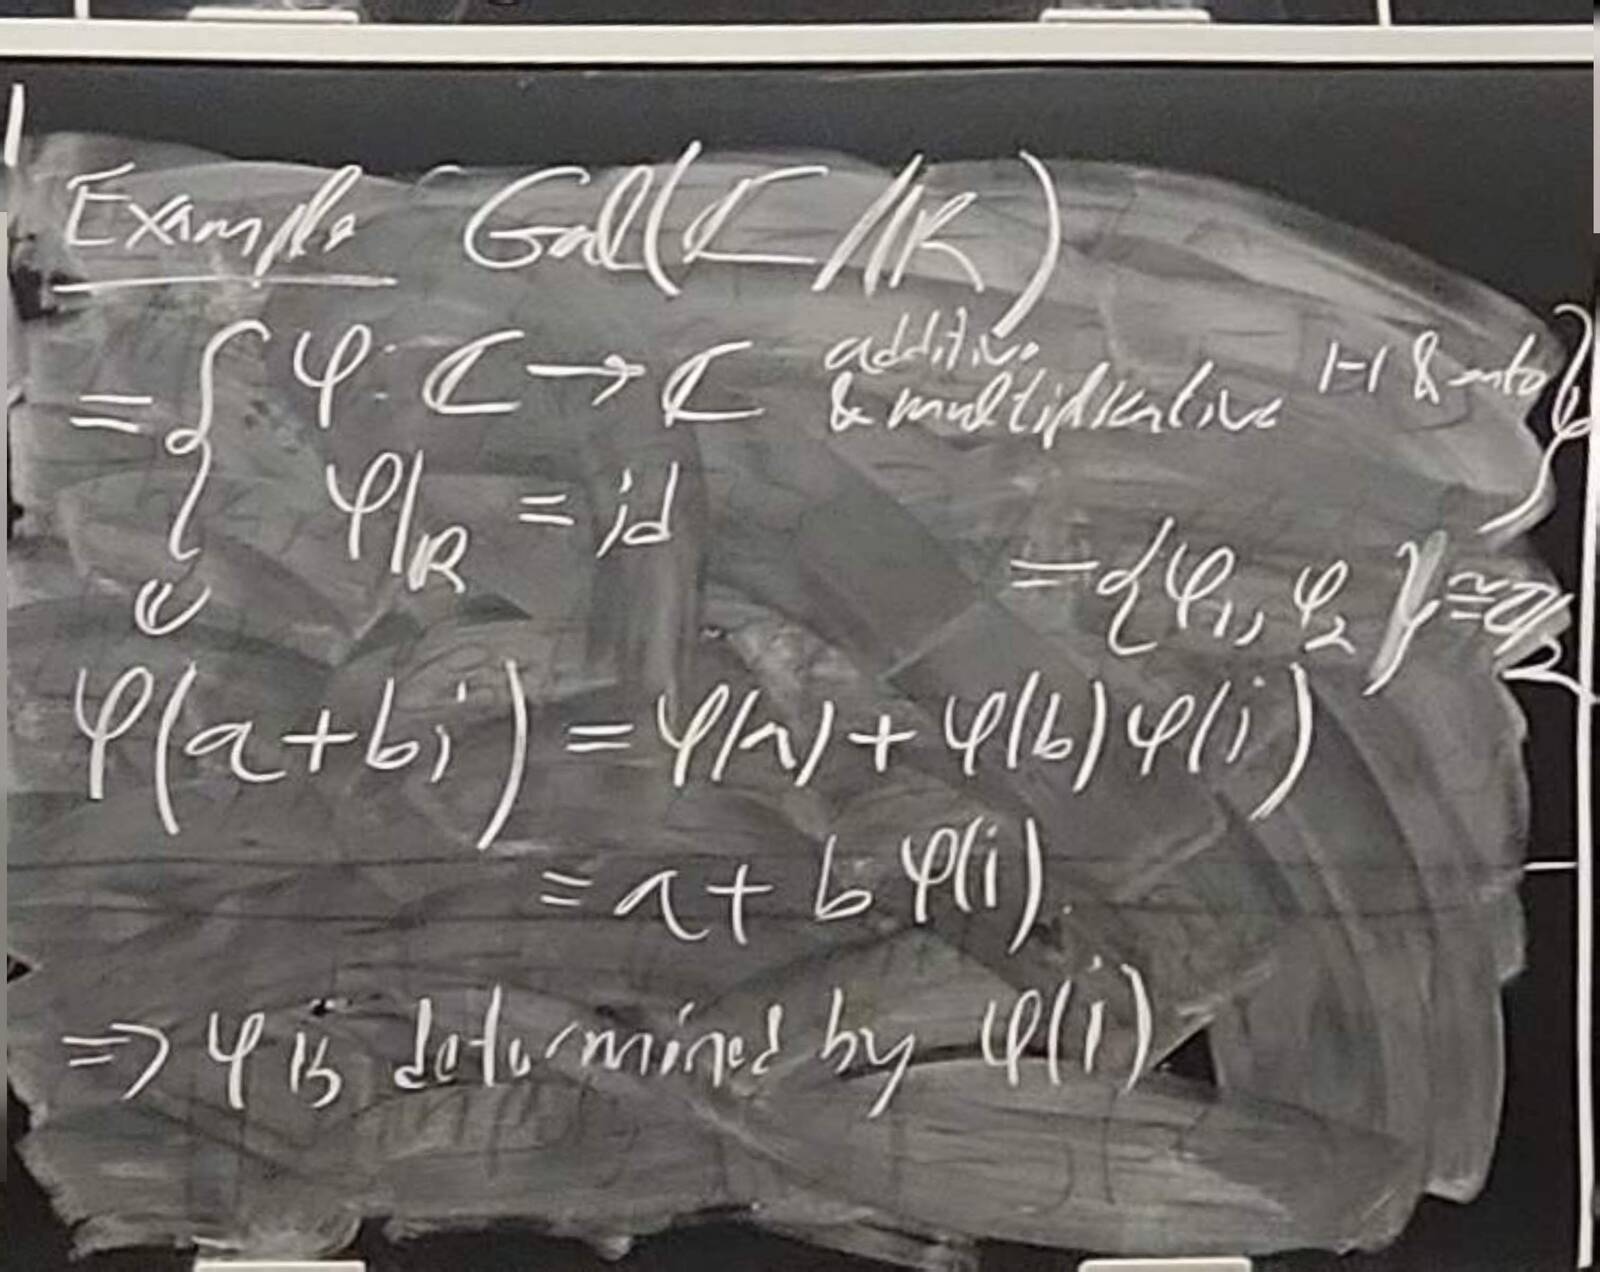 Example Gal(ℂ/ℝ)
= { φ: ℂ → ℂ additive & multiplicative 1-1 & onto
φ|ℝ = id }
= {φ₁, φ₂} ≅ ℤ/2
φ(a+bi) = φ(a) + φ(b) φ(i)
= a + b φ(i).
⇒ φ is determined by φ(i)